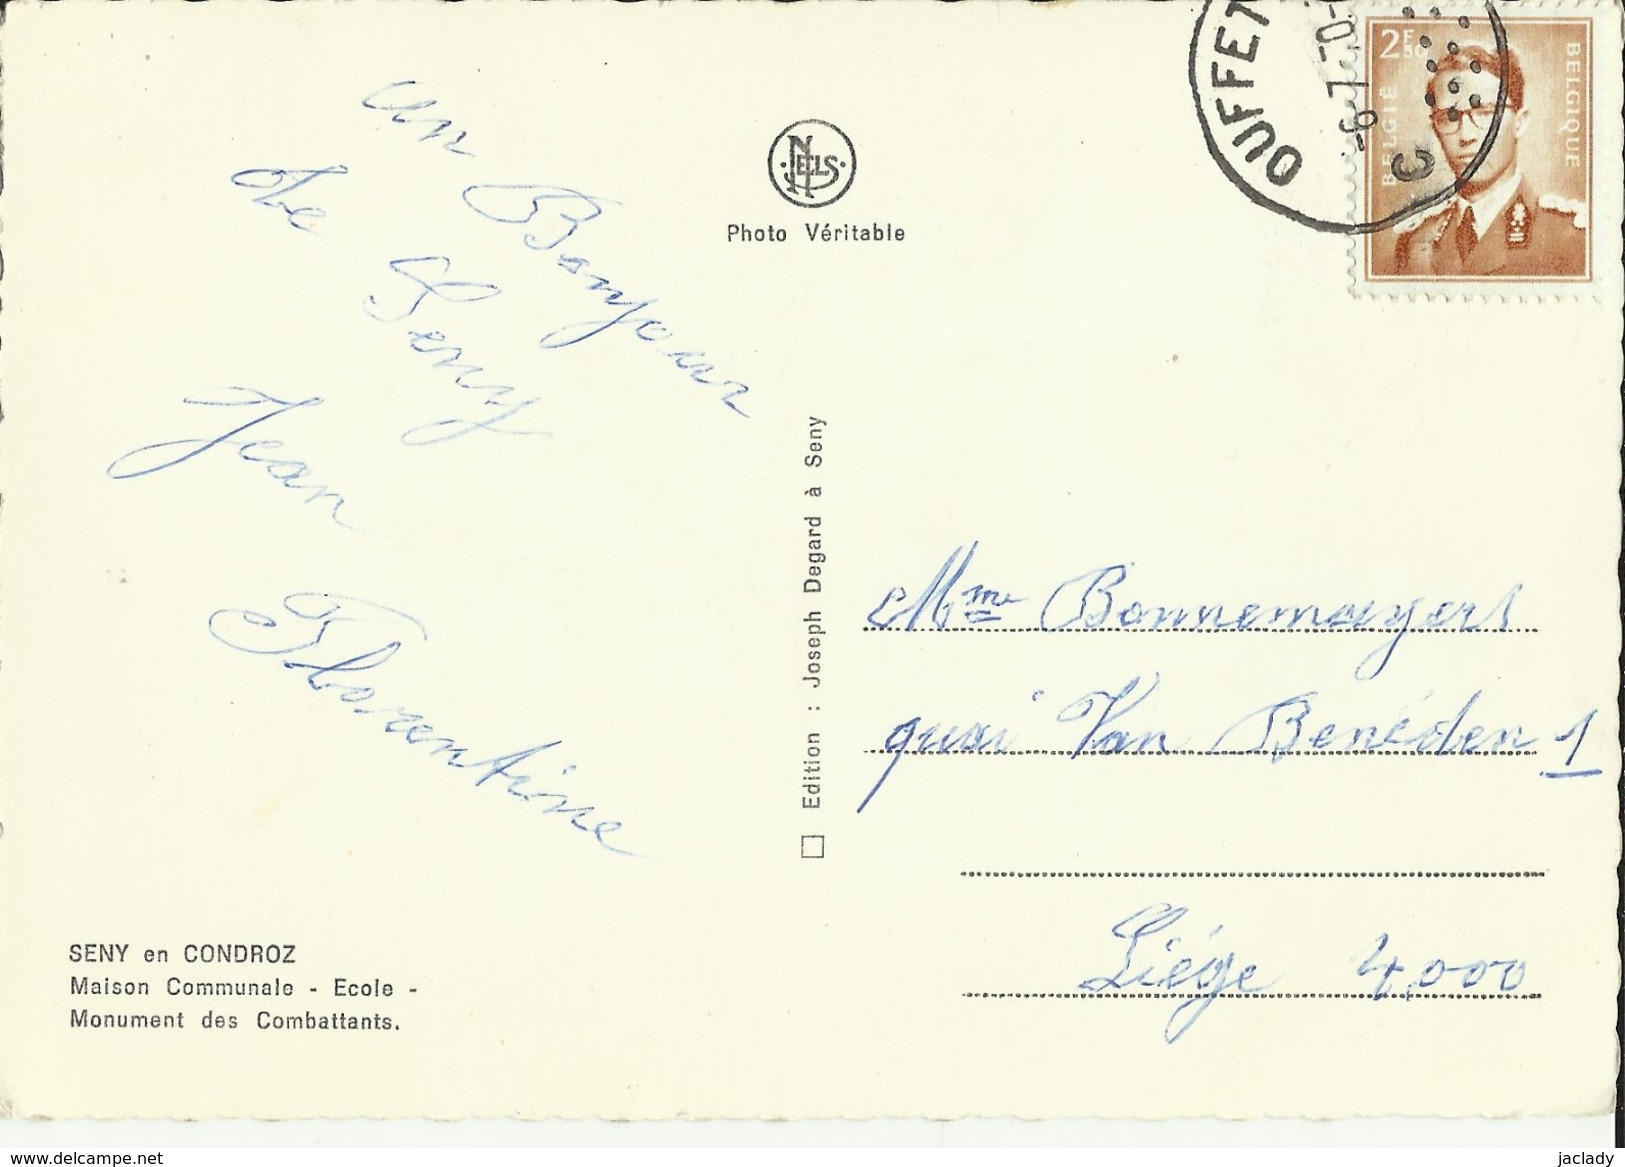 un Bonjour
de Seny
Jean
Florentine
NELS
Photo Véritable
OUFFET
-6-7-70-
C
2F50
BELGIË
BELGIQUE
Edition : Joseph Degard à Seny
Mme Bonnemayers
quai Van Benéden 1
Liége 4000
SENY en CONDROZ
Maison Communale - Ecole -
Monument des Combattants.
delcampe.net
jaclady